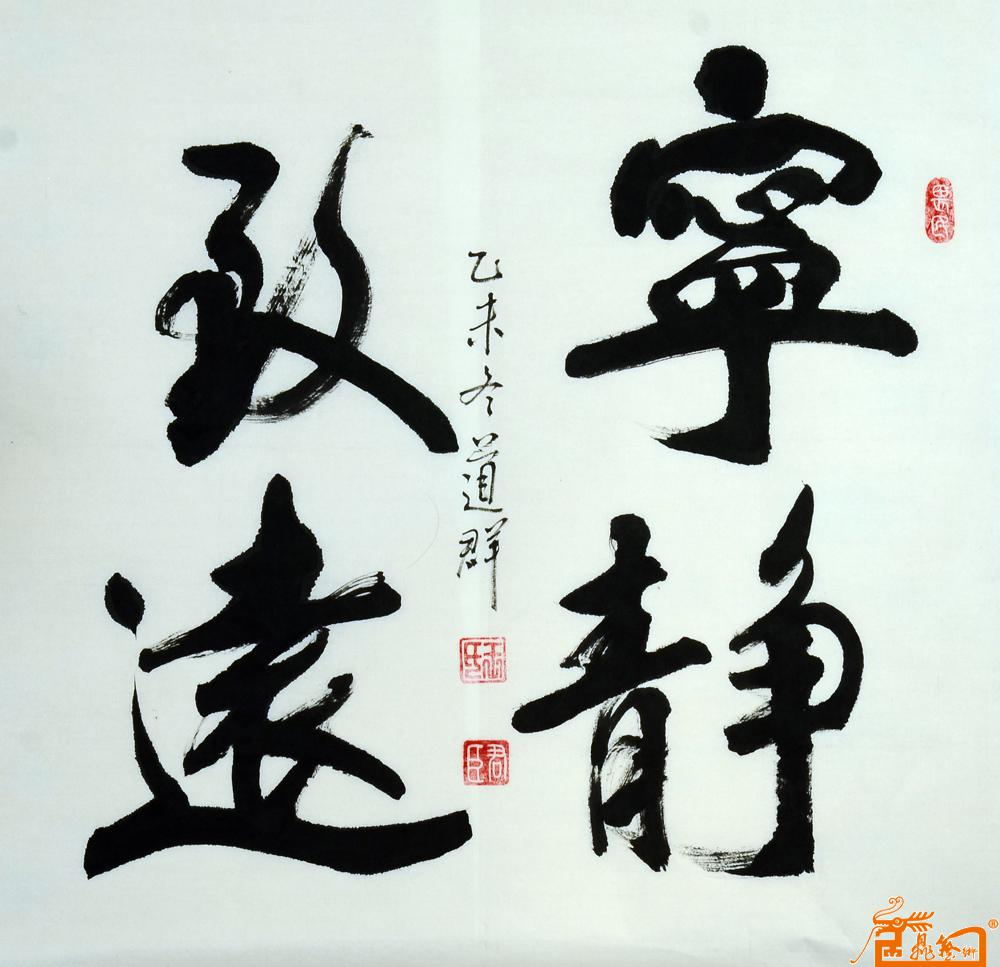 寧靜
致遠
乙未冬道群